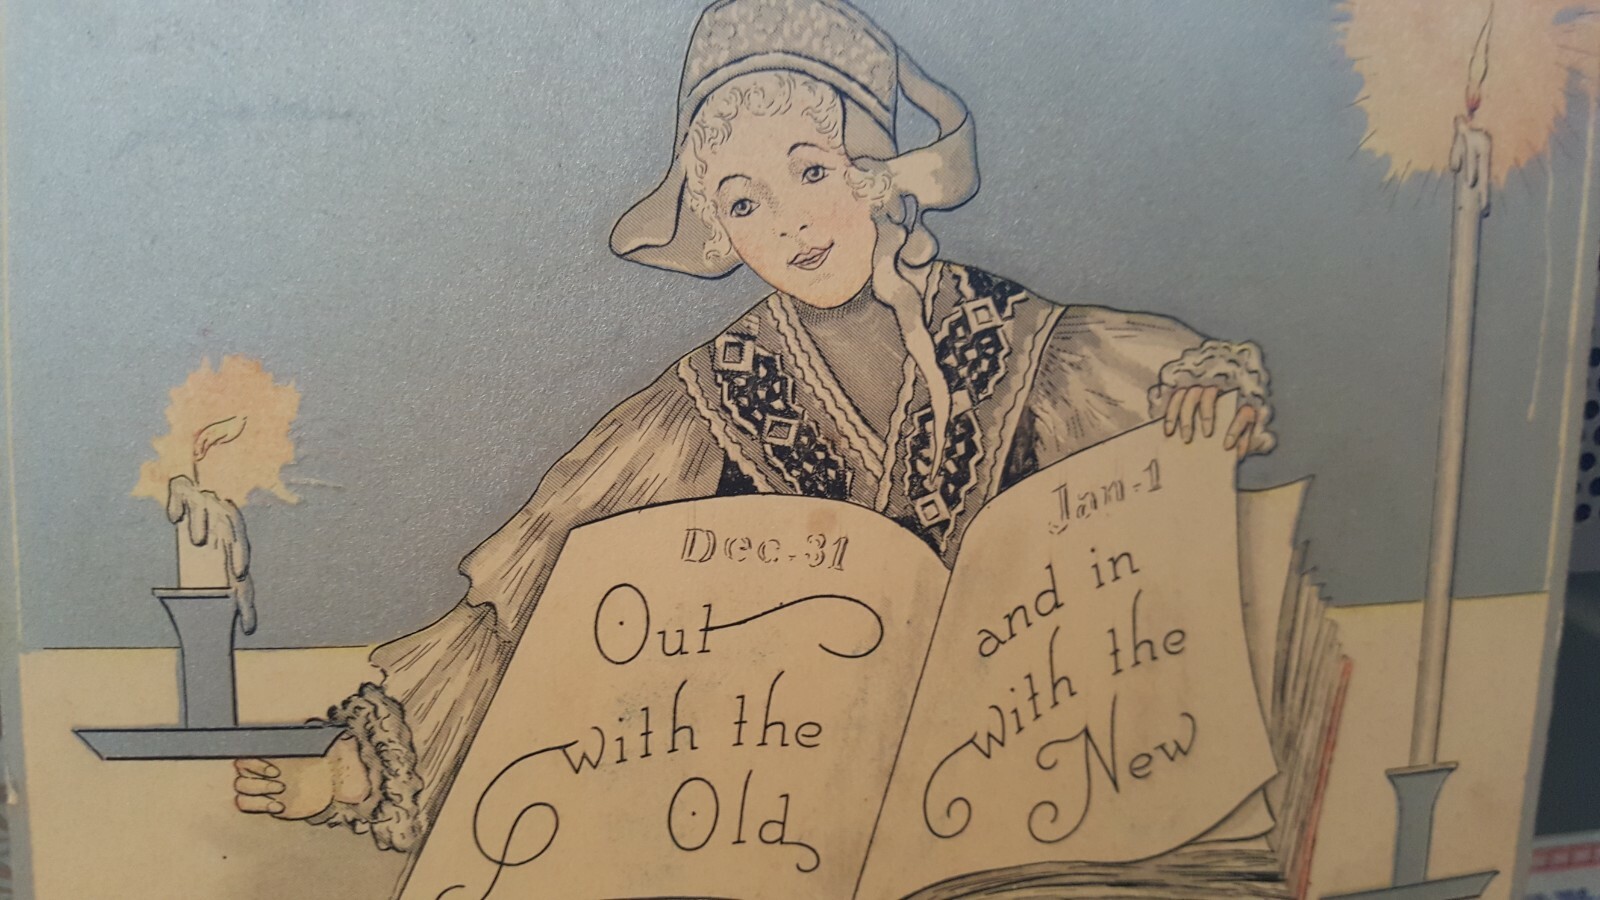 Dec-31
Out
with the
Old
Jan-1
and in
with the
New